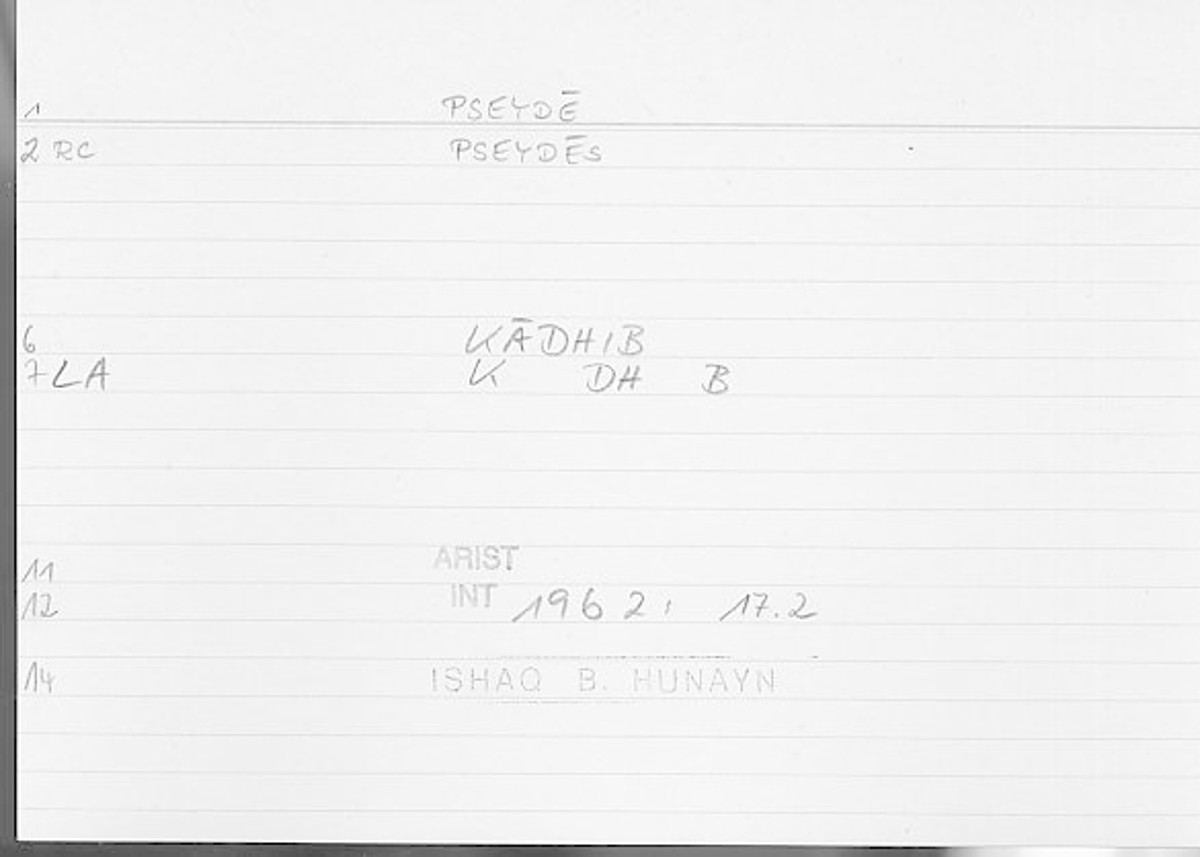 1 PSEYDĒ
2 RC PSEYDĒS
6 KĀDHIB
7 LA K DH B
11 ARIST
12 INT 1962, 17.2
14 ISHAQ B. HUNAYN